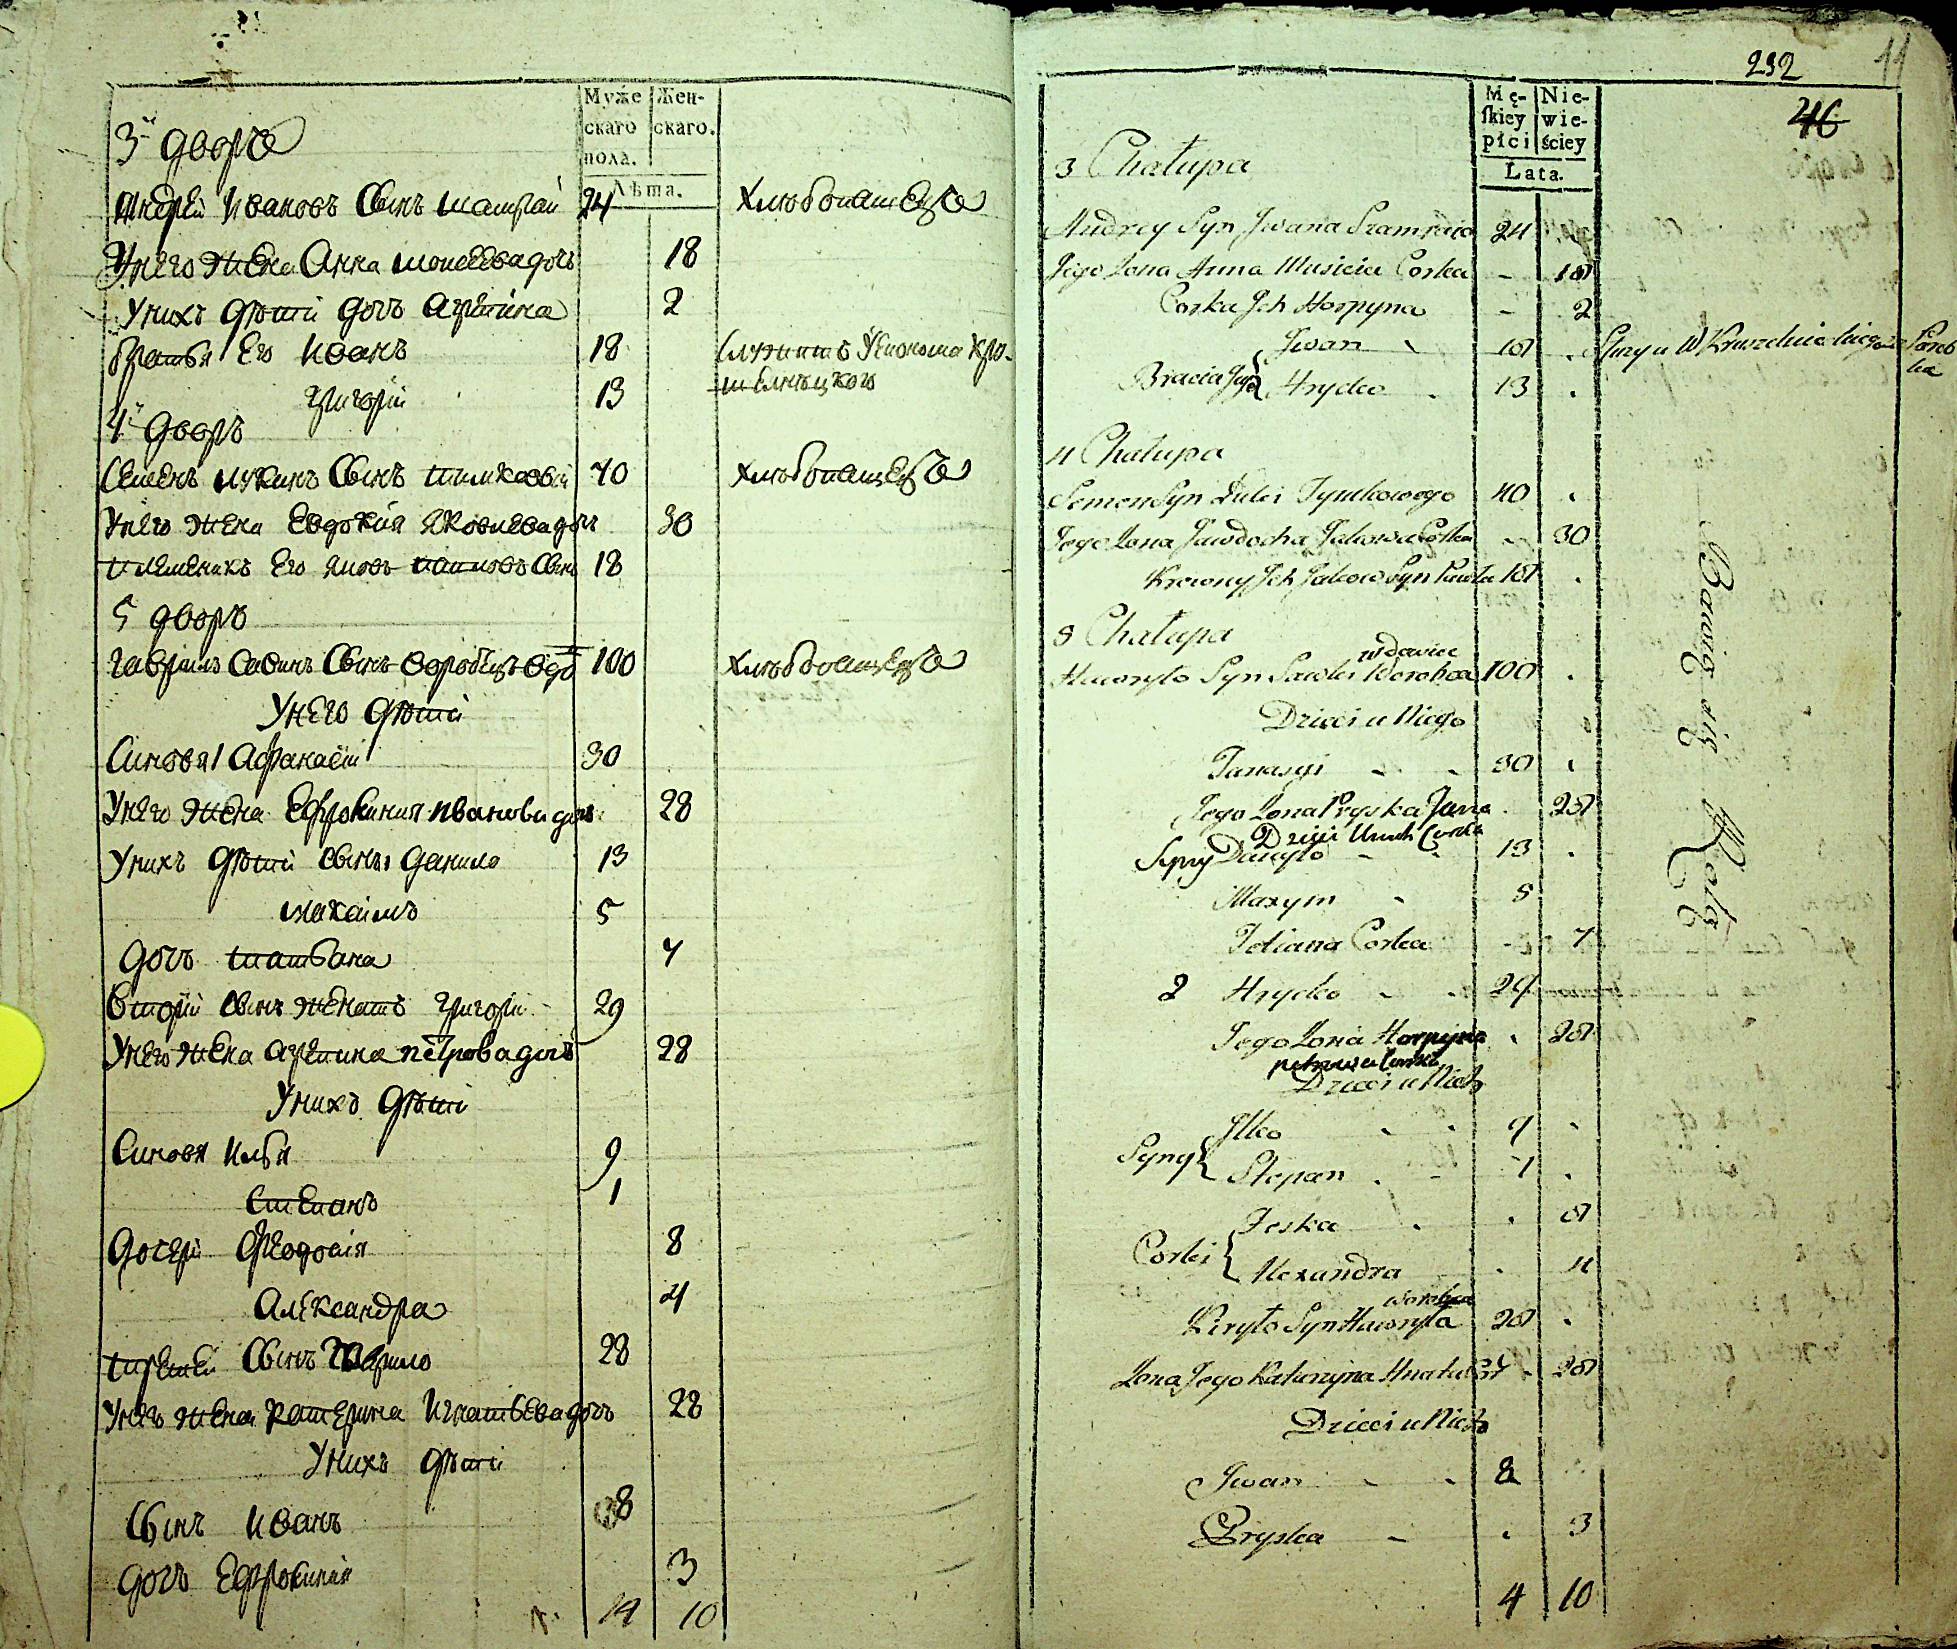 Муже
скаго
пола.
Жен-
скаго.
Лѣта.
3й дворъ
Андрей Ивановъ Сынъ 24 Хлѣбопашецъ
У него жена Анна дочь 18
У нихъ дѣти дочь Агрепина 2
братья Его Иванъ 18 Служитъ
Григорій 13
4й дворъ
Семенъ Лукинъ Сынъ 40 Хлѣбопашецъ
У него жена Евдокія Яковлева дочь 30
племеникъ Его Яковъ Павловъ Сынъ 18
5 дворъ
Гаврило Савинъ Сынъ 100 Хлѣбопашецъ
У него дѣти
Синовя Афанасій 30
У него жена Ефросиния Иванова дочь 28
У нихъ дѣти сыны Данило 13
Максимъ 5
дочь Татьана 7
вторій сынъ женатъ Григорій 29
У него жена Агрепина Петрова дочь 28
У нихъ дѣти
Синовя Илья 9
Степанъ 1
дочери Феодосія 8
Александра 4
третей Сынъ 28
У него жена Катерина Игнатьева дочь 28
У нихъ дѣти
Сынъ Иванъ 8
дочь Ефросинія 3
14 10
232
11
46
Mę-
skiey
płci
Nie-
wie-
ściey
Lata.
3 Chałupa
Andrey Syn Jwana 24
Jego Żona Anna Corka - 18
Corka Jch Horpyna - 2
Jwan 18
Bracia Jego Hrycko 13
4 Chałupa
Semen Syn Łuki Tymkowego 40
Jego Żona Jawdocha Jakowa Corka - 30
Krewny Jch Jakow Syn Pawła 18
5 Chałupa
wdowiec
Hawryło Syn Sawki Worobca 100
Dzieci u Niego
Tanasyi - - 30
Jego Żona Pryska Jwana 28
Dzieci U nich Corka
Syny Daniyło - 13
Maxym - 5
Tetiana Corka - 7
2 Hrycko - 29
Jego Żona Horpyna 28
petrowa Corka
Dzieci u Nich
Jlko 9
Syny Stepan 1
Feska 8
Corki Alexandra 4
Worobca
Kiryło Syn Hawryła 28
Żona Jego Katerzyna - 28
Dzieci u Nich
Jwan - 8
Pryska - 3
4 10
Bawią się Rolą